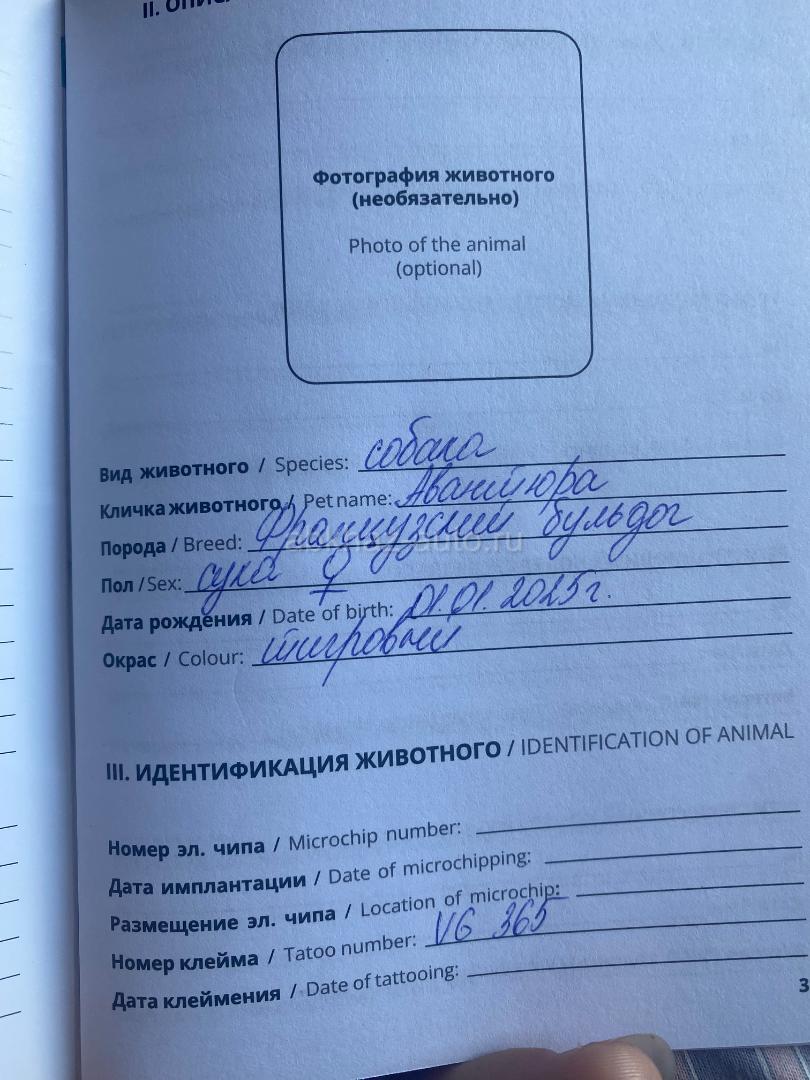 II. ОПИС
Фотография животного
(необязательно)
Photo of the animal
(optional)
Вид животного / Species: собака
Кличка животного / Pet name: Авантюра
Порода / Breed: Французский бульдог
Пол / Sex: сука ♀
Дата рождения / Date of birth: 01.01.2025г.
Окрас / Colour: тигровый
III. ИДЕНТИФИКАЦИЯ ЖИВОТНОГО / IDENTIFICATION OF ANIMAL
Номер эл. чипа / Microchip number:
Дата имплантации / Date of microchipping:
Размещение эл. чипа / Location of microchip:
Номер клейма / Tatoo number: VG 365
Дата клеймения / Date of tattooing:
3